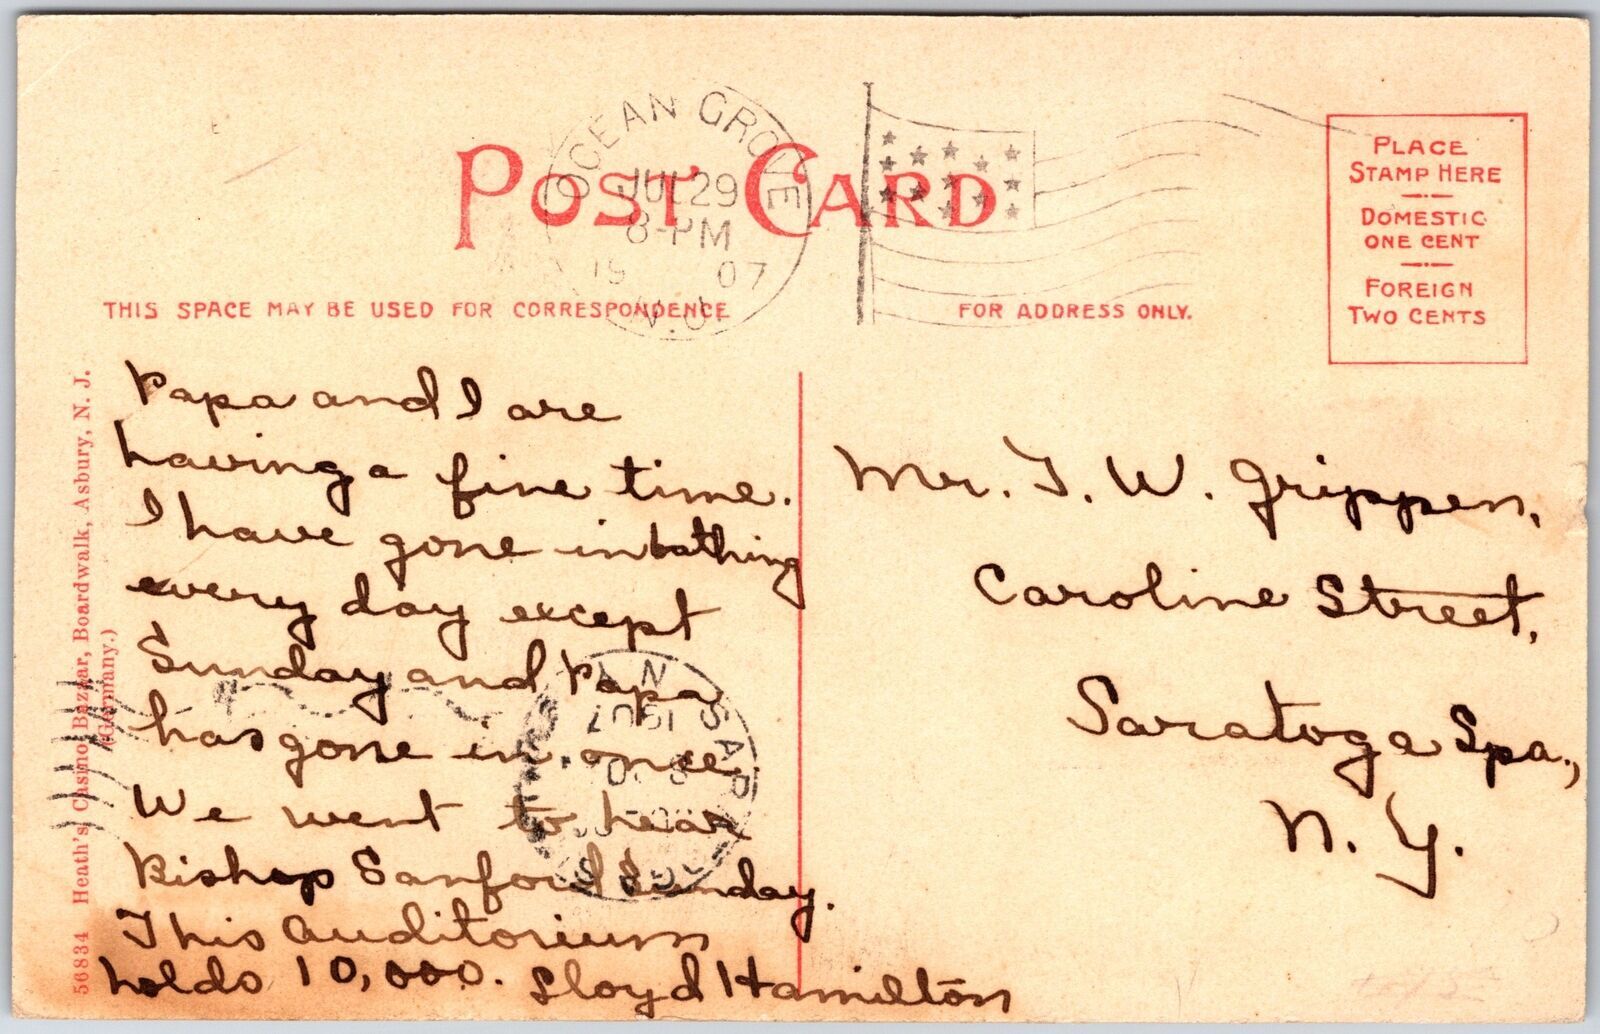 OCEAN GROVE
JUL 29
8-PM
19 07
N.J.
POST CARD
PLACE
STAMP HERE
DOMESTIC
ONE CENT
FOREIGN
TWO CENTS
THIS SPACE MAY BE USED FOR CORRESPONDENCE
FOR ADDRESS ONLY.
56834 Heath's Casino Bazaar, Boardwalk, Asbury, N. J.
(Germany.)
Papa and I are
having a fine time.
I have gone in bathing
every day except
Sunday and Papa
has gone in once.
We went to hear
Bishop Sanford Sunday.
This Auditorium
holds 10,000. Lloyd Hamilton
Mr. T. W. Grippen,
Caroline Street,
Saratoga Spa.,
N. Y.
1907